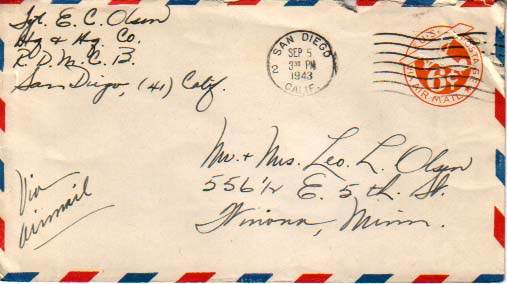 Sgt. E. C. Olsen
Hq & Hq. Co.
R. D. M. C. B.
San Diego, (41) Calif.
SAN DIEGO
SEP 5
3 30 PM
1943
CALIF.
2
6¢
AIR MAIL
Mr. + Mrs. Leo. L. Olsen
556 1/2 E. 5th. St.
Winona, Minn.
Via
airmail